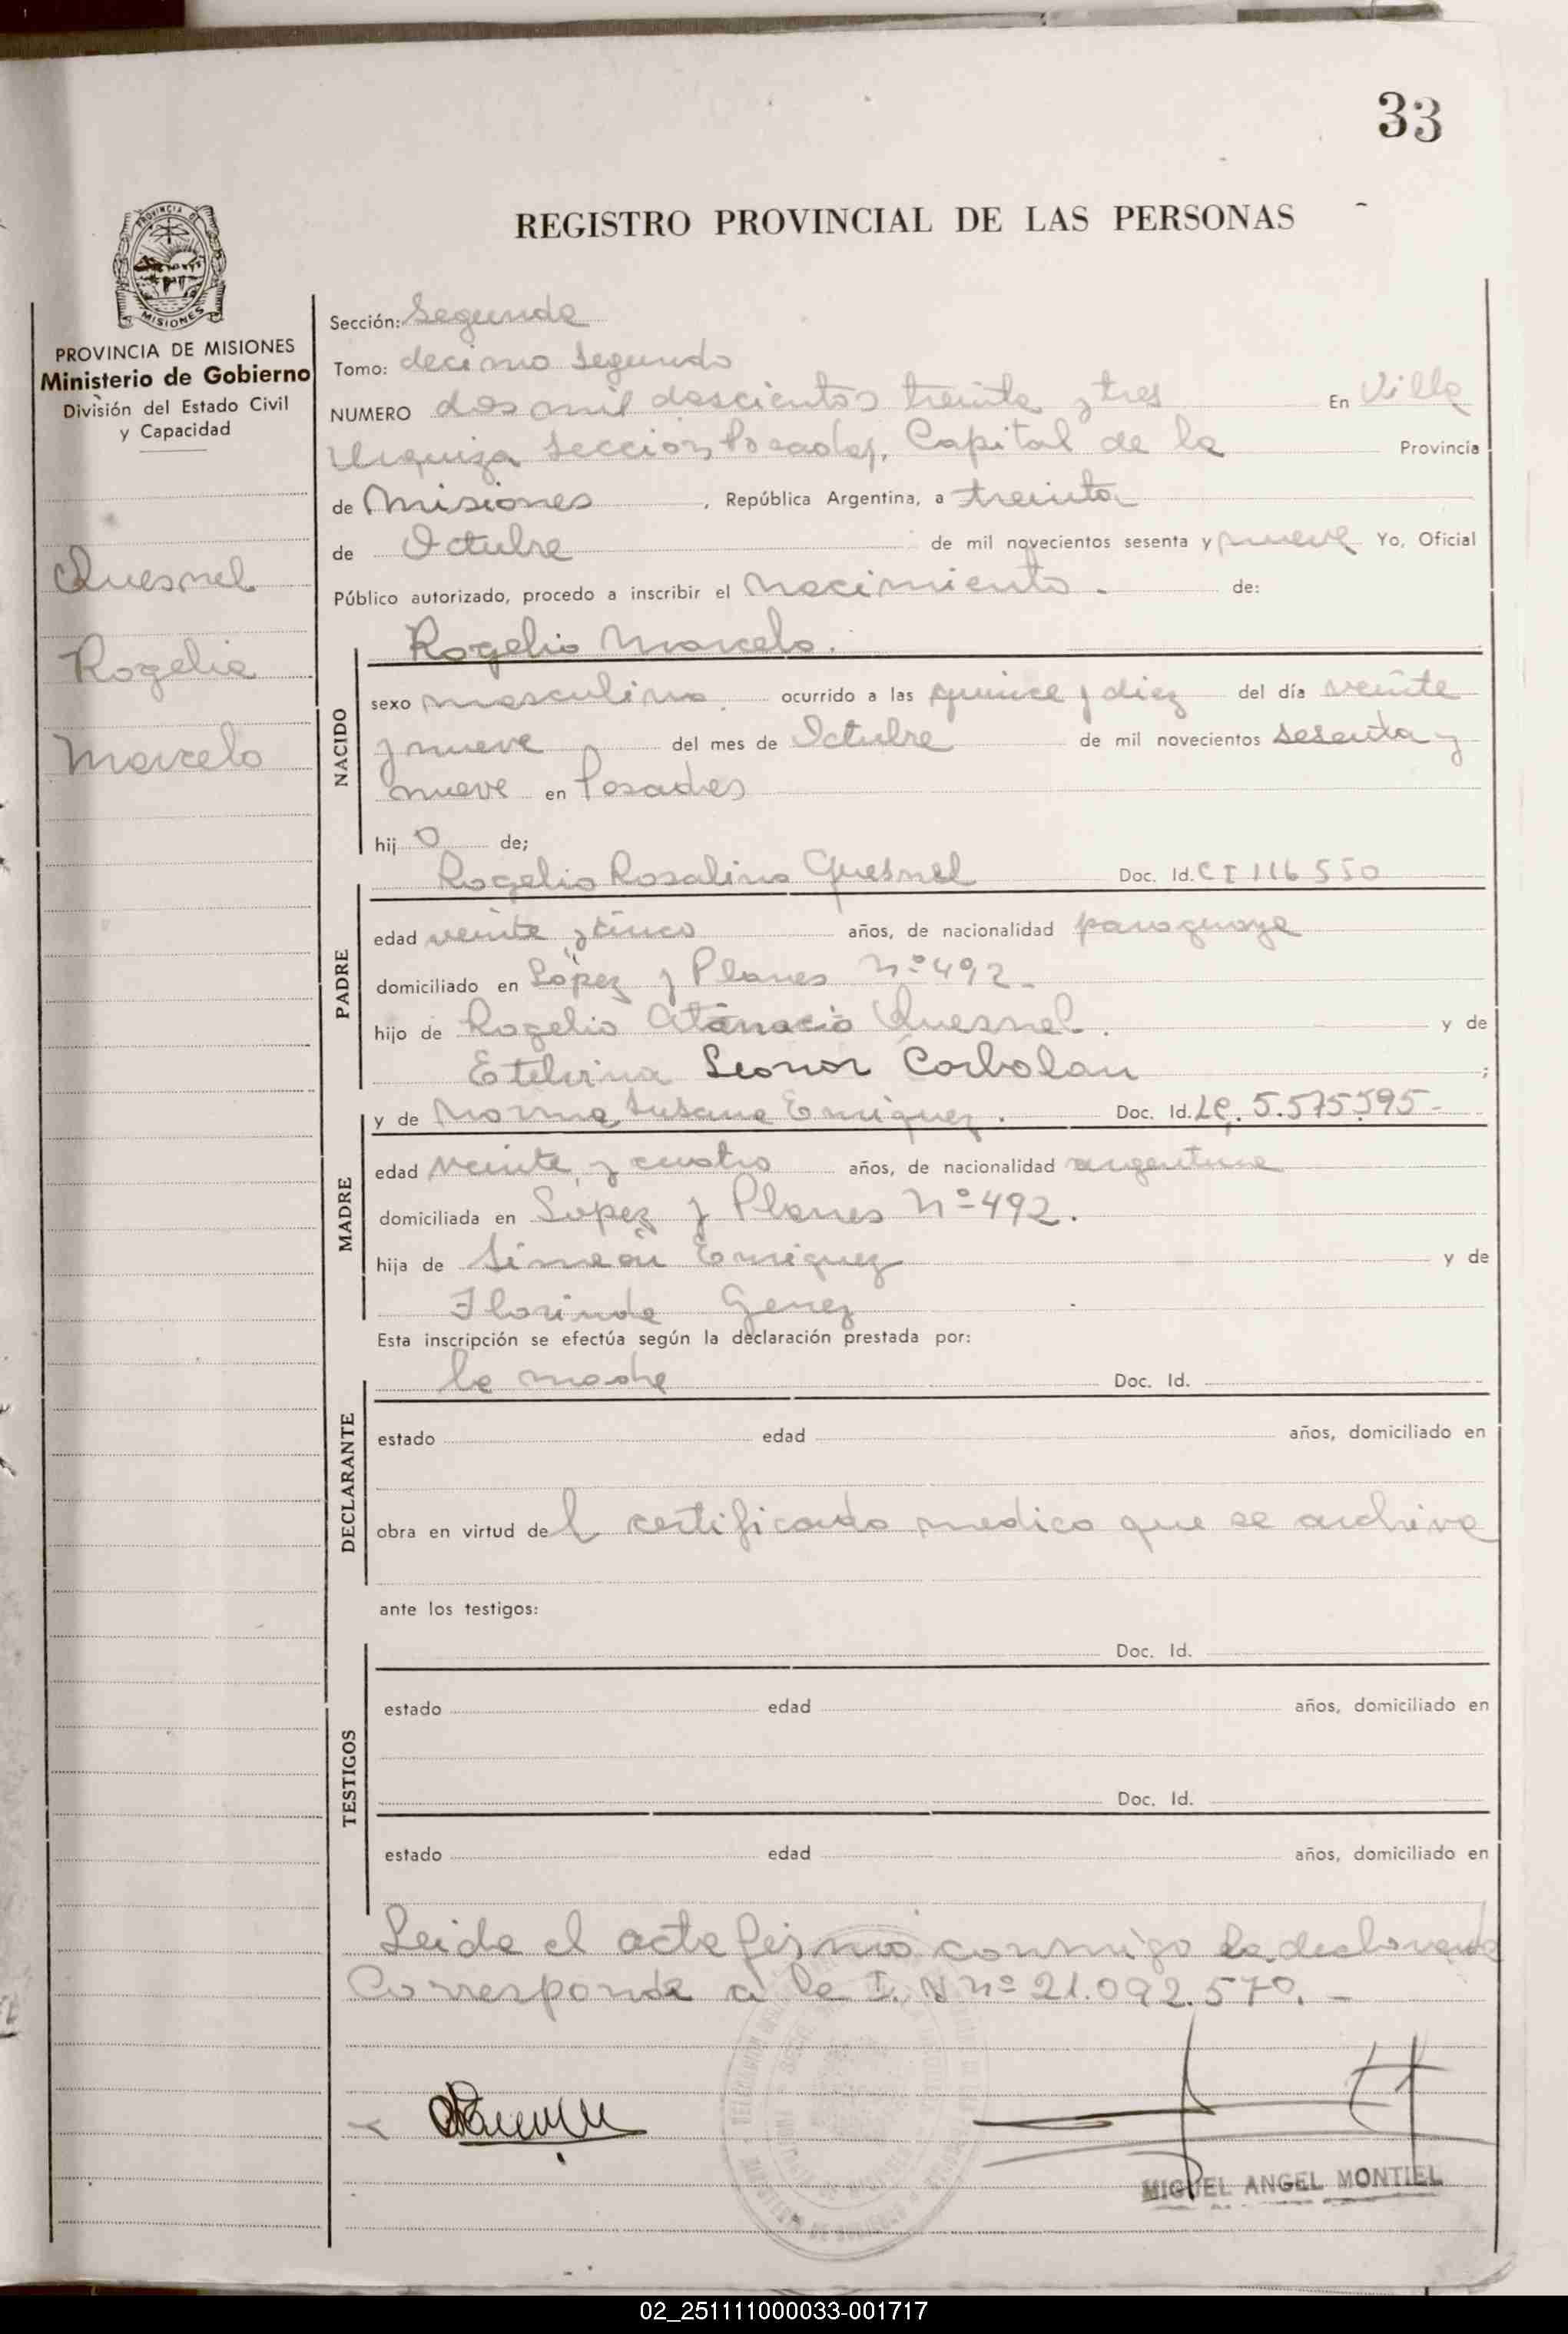 33
REGISTRO PROVINCIAL DE LAS PERSONAS
PROVINCIA DE MISIONES
Ministerio de Gobierno
División del Estado Civil
y Capacidad
Quesnel
Rogelio
Marcelo
Sección: Segunda
Tomo: decimo segundo
NUMERO dos mil doscientos treinta y tres En Villa
Urquiza Sección Posadas, Capital de la Provincia
de Misiones, República Argentina, a treinta
de Octubre de mil novecientos sesenta y nueve Yo, Oficial
Público autorizado, procedo a inscribir el nacimiento. de:
Rogelio Marcelo.
NACIDO
sexo masculino. ocurrido a las quince y diez del día veinte
y nueve del mes de Octubre de mil novecientos sesenta y
nueve en Posadas
hijo de;
Rogelio Rosalino Quesnel Doc. Id. CI 116 550
PADRE
edad veinte y cinco años, de nacionalidad paraguaya
domiciliado en López y Planes Nº 492.
hijo de Rogelio Atanacio Quesnel. y de
Etelvina Leonor Corbolan ;
y de Norma Susana Enriquez. Doc. Id. LC. 5.575595-
MADRE
edad veinte y cuatro años, de nacionalidad argentina
domiciliada en López y Planes Nº 492.
hija de Simeón Enriquez y de
Florinda Genez
Esta inscripción se efectúa según la declaración prestada por:
la madre Doc. Id.
DECLARANTE
estado edad años, domiciliado en
obra en virtud del certificado medico que se archiva
ante los testigos:
Doc. Id.
TESTIGOS
estado edad años, domiciliado en
Doc. Id.
estado edad años, domiciliado en
Leida el acta firmó conmigo la declarante
Corresponde a la I. N nº 21.092.570. -
MIGUEL ANGEL MONTIEL
02_251111000033-001717